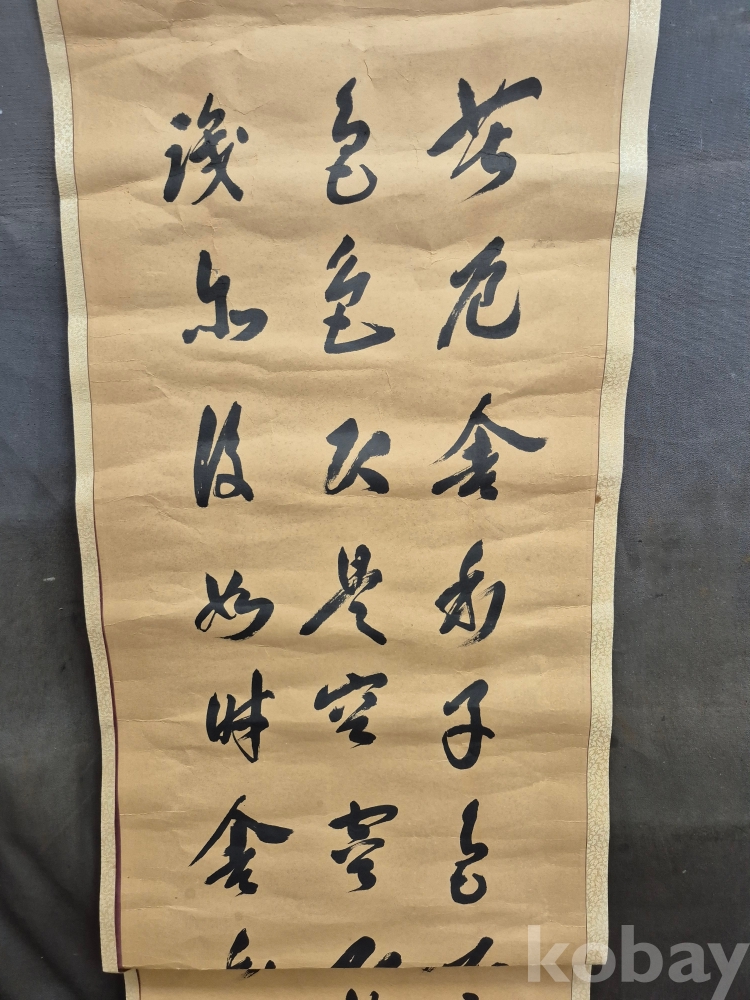 苦厄舍利子色
色色即是空空
識亦復如舍
kobay